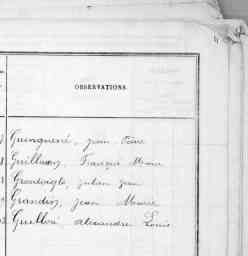 OBSERVATIONS.
Guinguené, jean Pierre
Guillaux, François Marie
julien jean
Grandin, jean Marie
Guilloré, alexandre Louis